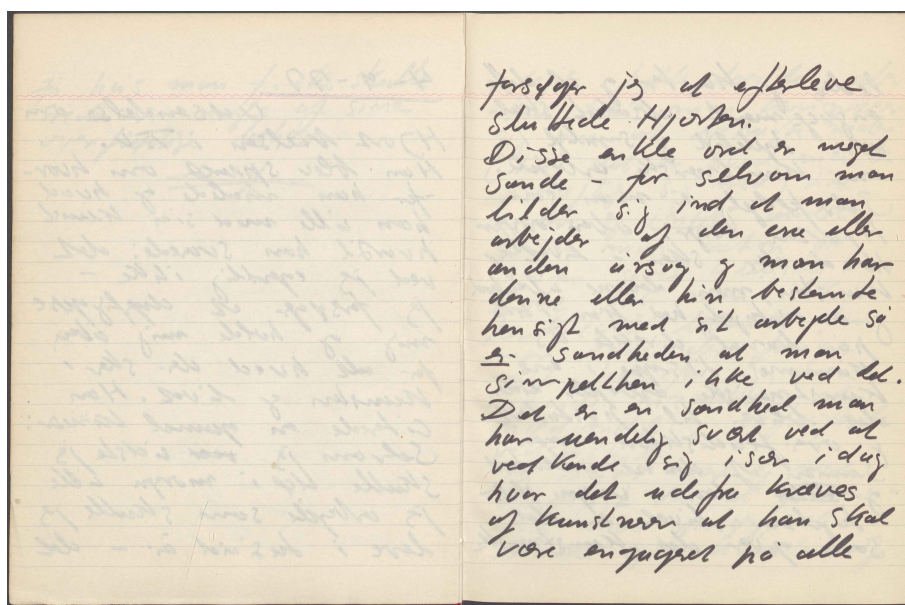 forsøger jeg at efterleve
sluttede Hjorten.
Disse enkle ord er meget
sande – for selvom man
bilder sig ind at man
arbejder af den ene eller
anden årsag og man har
denne eller hin bestemte
hensigt med sit arbejde så
er sandheden at man
simpelthen ikke ved det.
Det er en sandhed man
har uendelig svært ved at
vedkende sig især i dag
hvor det udefra kræves
af kunstneren at han skal
være engageret på alle